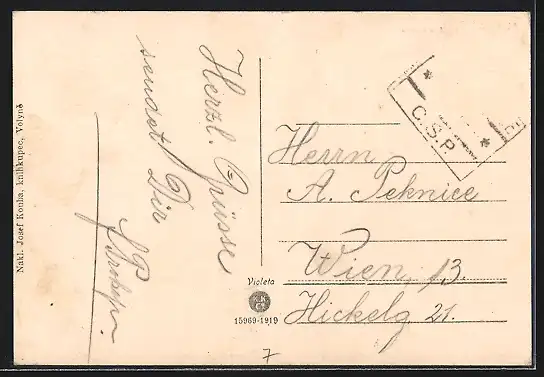 Herzl. Grüsse
sendet Dir
Prokop.
Nakl. Josef Kouba, knihkupec, Volyně
C.S.P.
Herrn
A. Peknice
Wien, 13.
Hickelg. 21.
Violeta
15969-1919
7